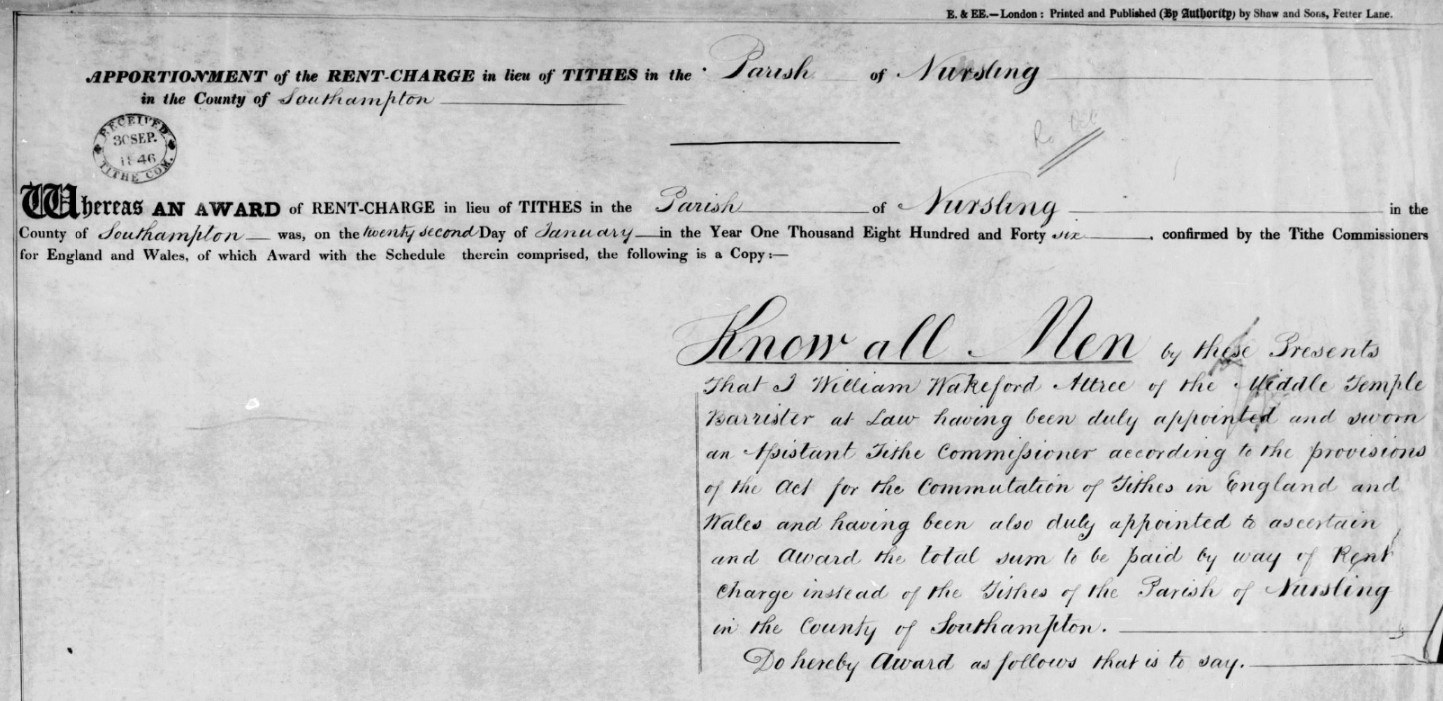 E. & EE.—London: Printed and Published (By Authority) by Shaw and Sons, Fetter Lane.
APPORTIONMENT of the RENT-CHARGE in lieu of TITHES in the Parish of Nursling
in the County of Southampton
RECEIVED
30 SEP.
1846
TITHE COM.
Whereas AN AWARD of RENT-CHARGE in lieu of TITHES in the Parish of Nursling in the
County of Southampton was, on the twenty second Day of January in the Year One Thousand Eight Hundred and Forty six, confirmed by the Tithe Commissioners
for England and Wales, of which Award with the Schedule therein comprised, the following is a Copy:—
Know all Men by these Presents
That I William Wakeford Attree of the Middle Temple
Barrister at Law having been duly appointed and sworn
an Assistant Tithe Commissioner according to the provisions
of the Act for the Commutation of Tithes in England and
Wales and having been also duly appointed to ascertain
and Award the total sum to be paid by way of Rent
Charge instead of the Tithes of the Parish of Nursling
in the County of Southampton.
Do hereby Award as follows that is to say.